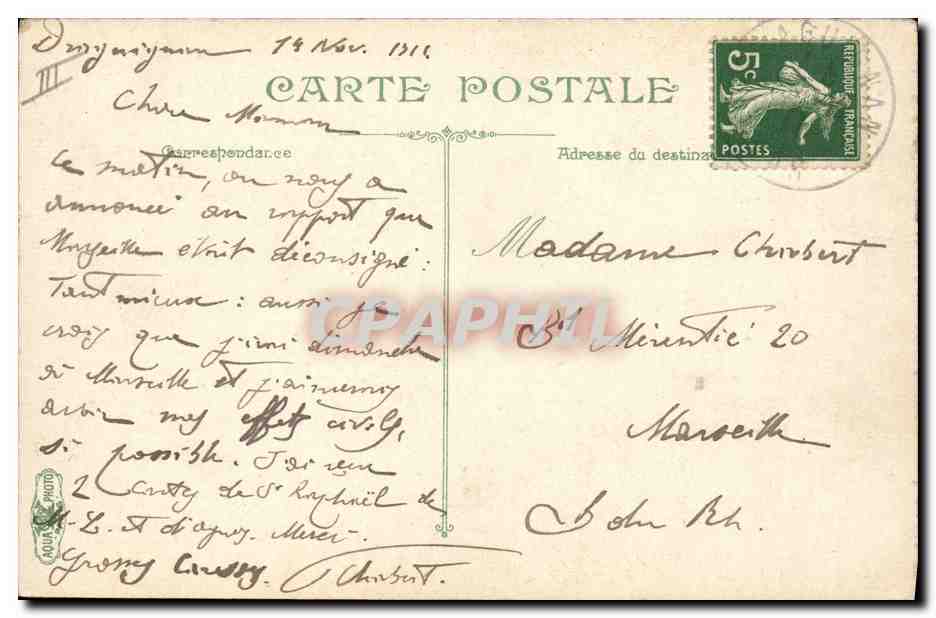 Draguignan 14 Nov. 191
III
CARTE POSTALE
Chère Maman
Correspondance
Adresse du destina
5c
REPUBLIQUE FRANÇAISE
POSTES
ce matin, on nous a
annoncé au rapport que
Marseille était déconsigné :
Tant mieux : aussi je
crois que j'irai dimanche
à Marseille et j'aimerais
avoir mes effets civils,
si possible. J'ai reçu
2 cartes de St Raphaël de
M-L. et d'Agnès. Merci.
Grosses Caresses. Chabert.
Madame Chabert
Bd Mérentié 20
Marseille
B du Rh.
AQUA PHOTO
CPAPHIL